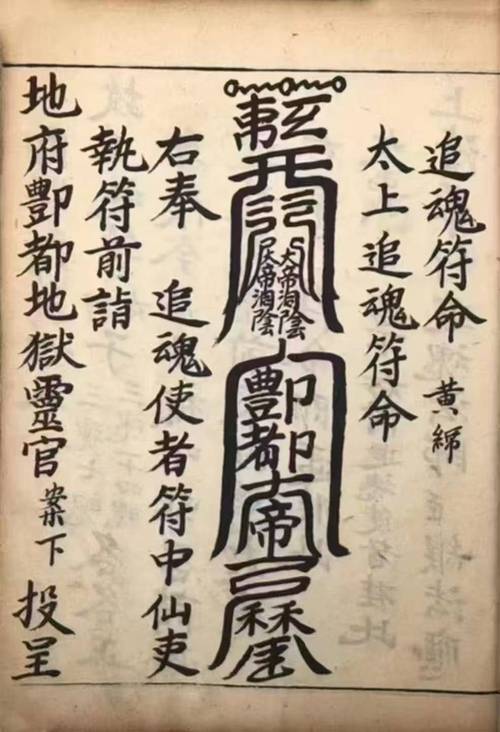 追魂符命 黃
太上追魂符命
大帝洞陰
帝洞陰
酆都大帝
右奉 追魂使者符中仙吏
執符前詣
地府酆都地獄靈官案下 投呈